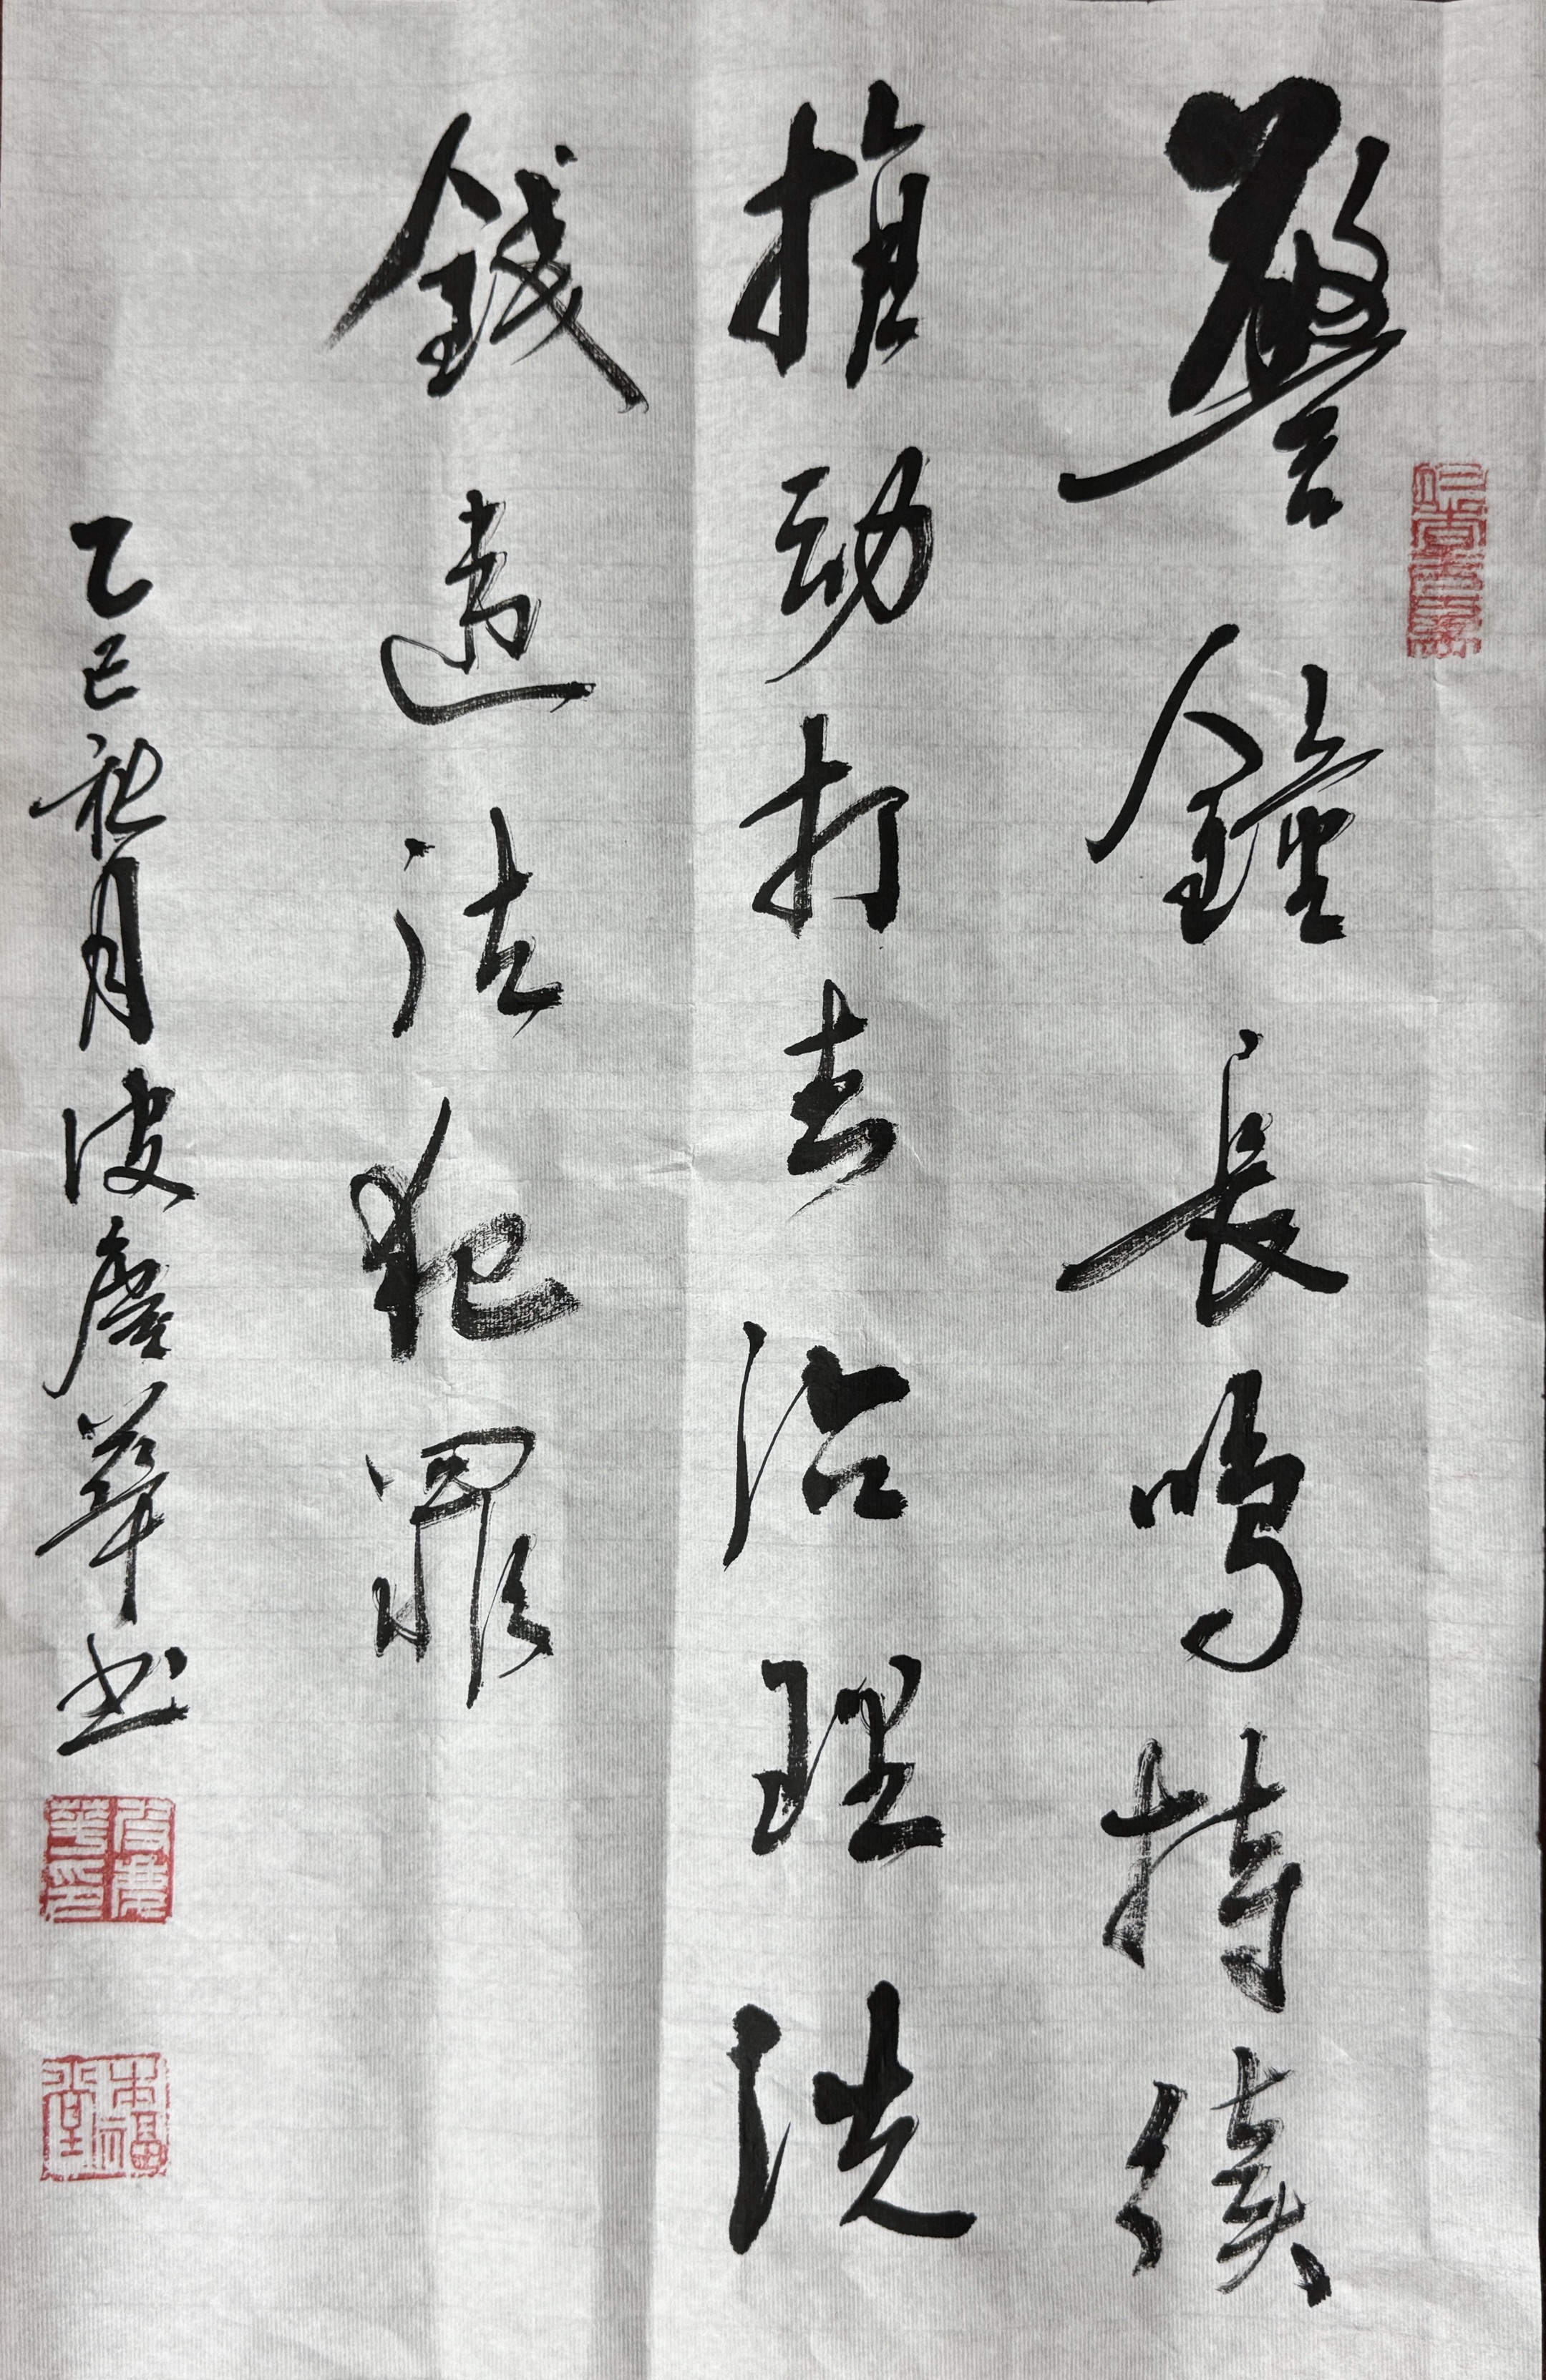 警鐘長鳴持續
推動打击治理洗
錢違法犯罪
乙巳秋月 華书